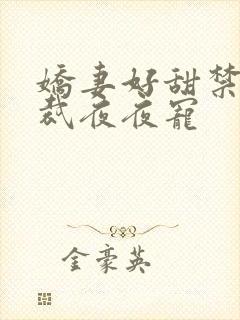 嬌妻好甜禁
裁夜夜寵
金豪英